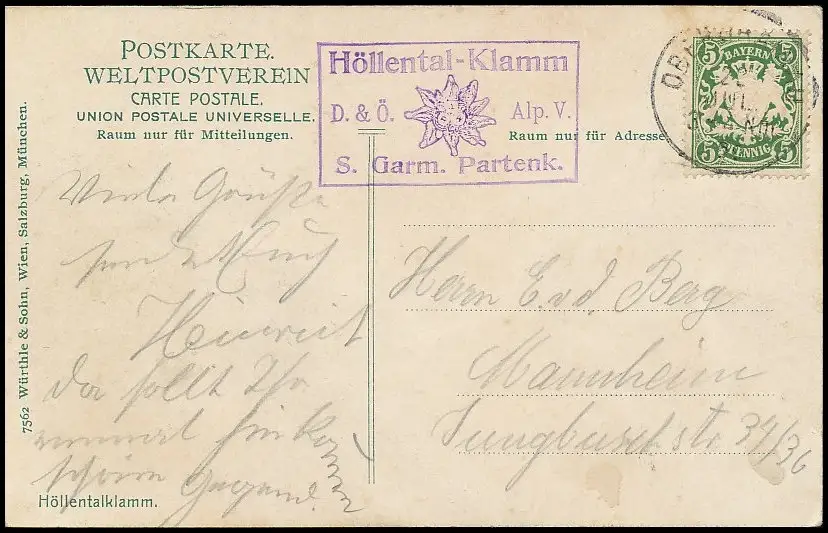 POSTKARTE.
WELTPOSTVEREIN
CARTE POSTALE.
UNION POSTALE UNIVERSELLE.
Raum nur für Mitteilungen.
Höllental-Klamm
D. & Ö. Alp. V.
S. Garm. Partenk.
Raum nur für Adresse
5 BAYERN 5
5 PFENNIG 5
Viele Grüße
sendet Euch
Heinrich
da sollt Ihr
einmal hinkommen
schöne Gegend.
Herrn E. v. d. Berg
Mannheim
Jungbuschstr 34/36
7562 Würthle & Sohn, Wien, Salzburg, München.
Höllentalklamm.